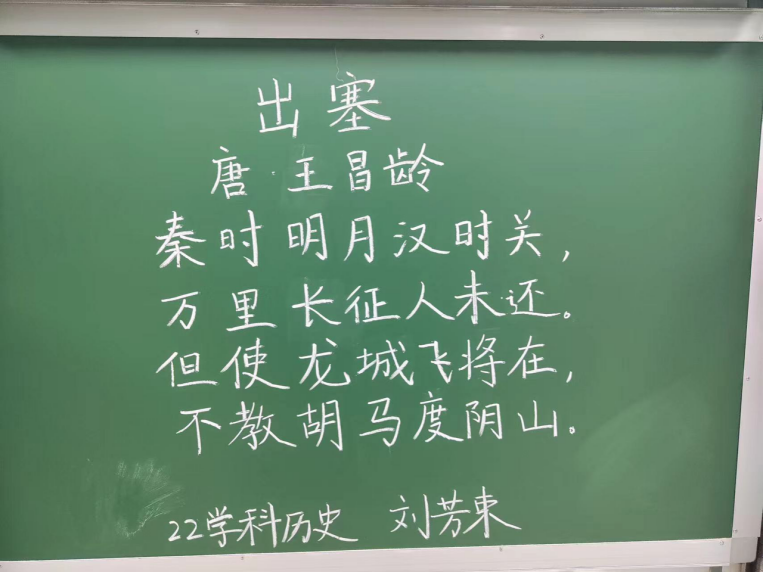 出塞
唐·王昌龄
秦时明月汉时关，
万里长征人未还。
但使龙城飞将在，
不教胡马度阴山。
22学科历史 刘芳東